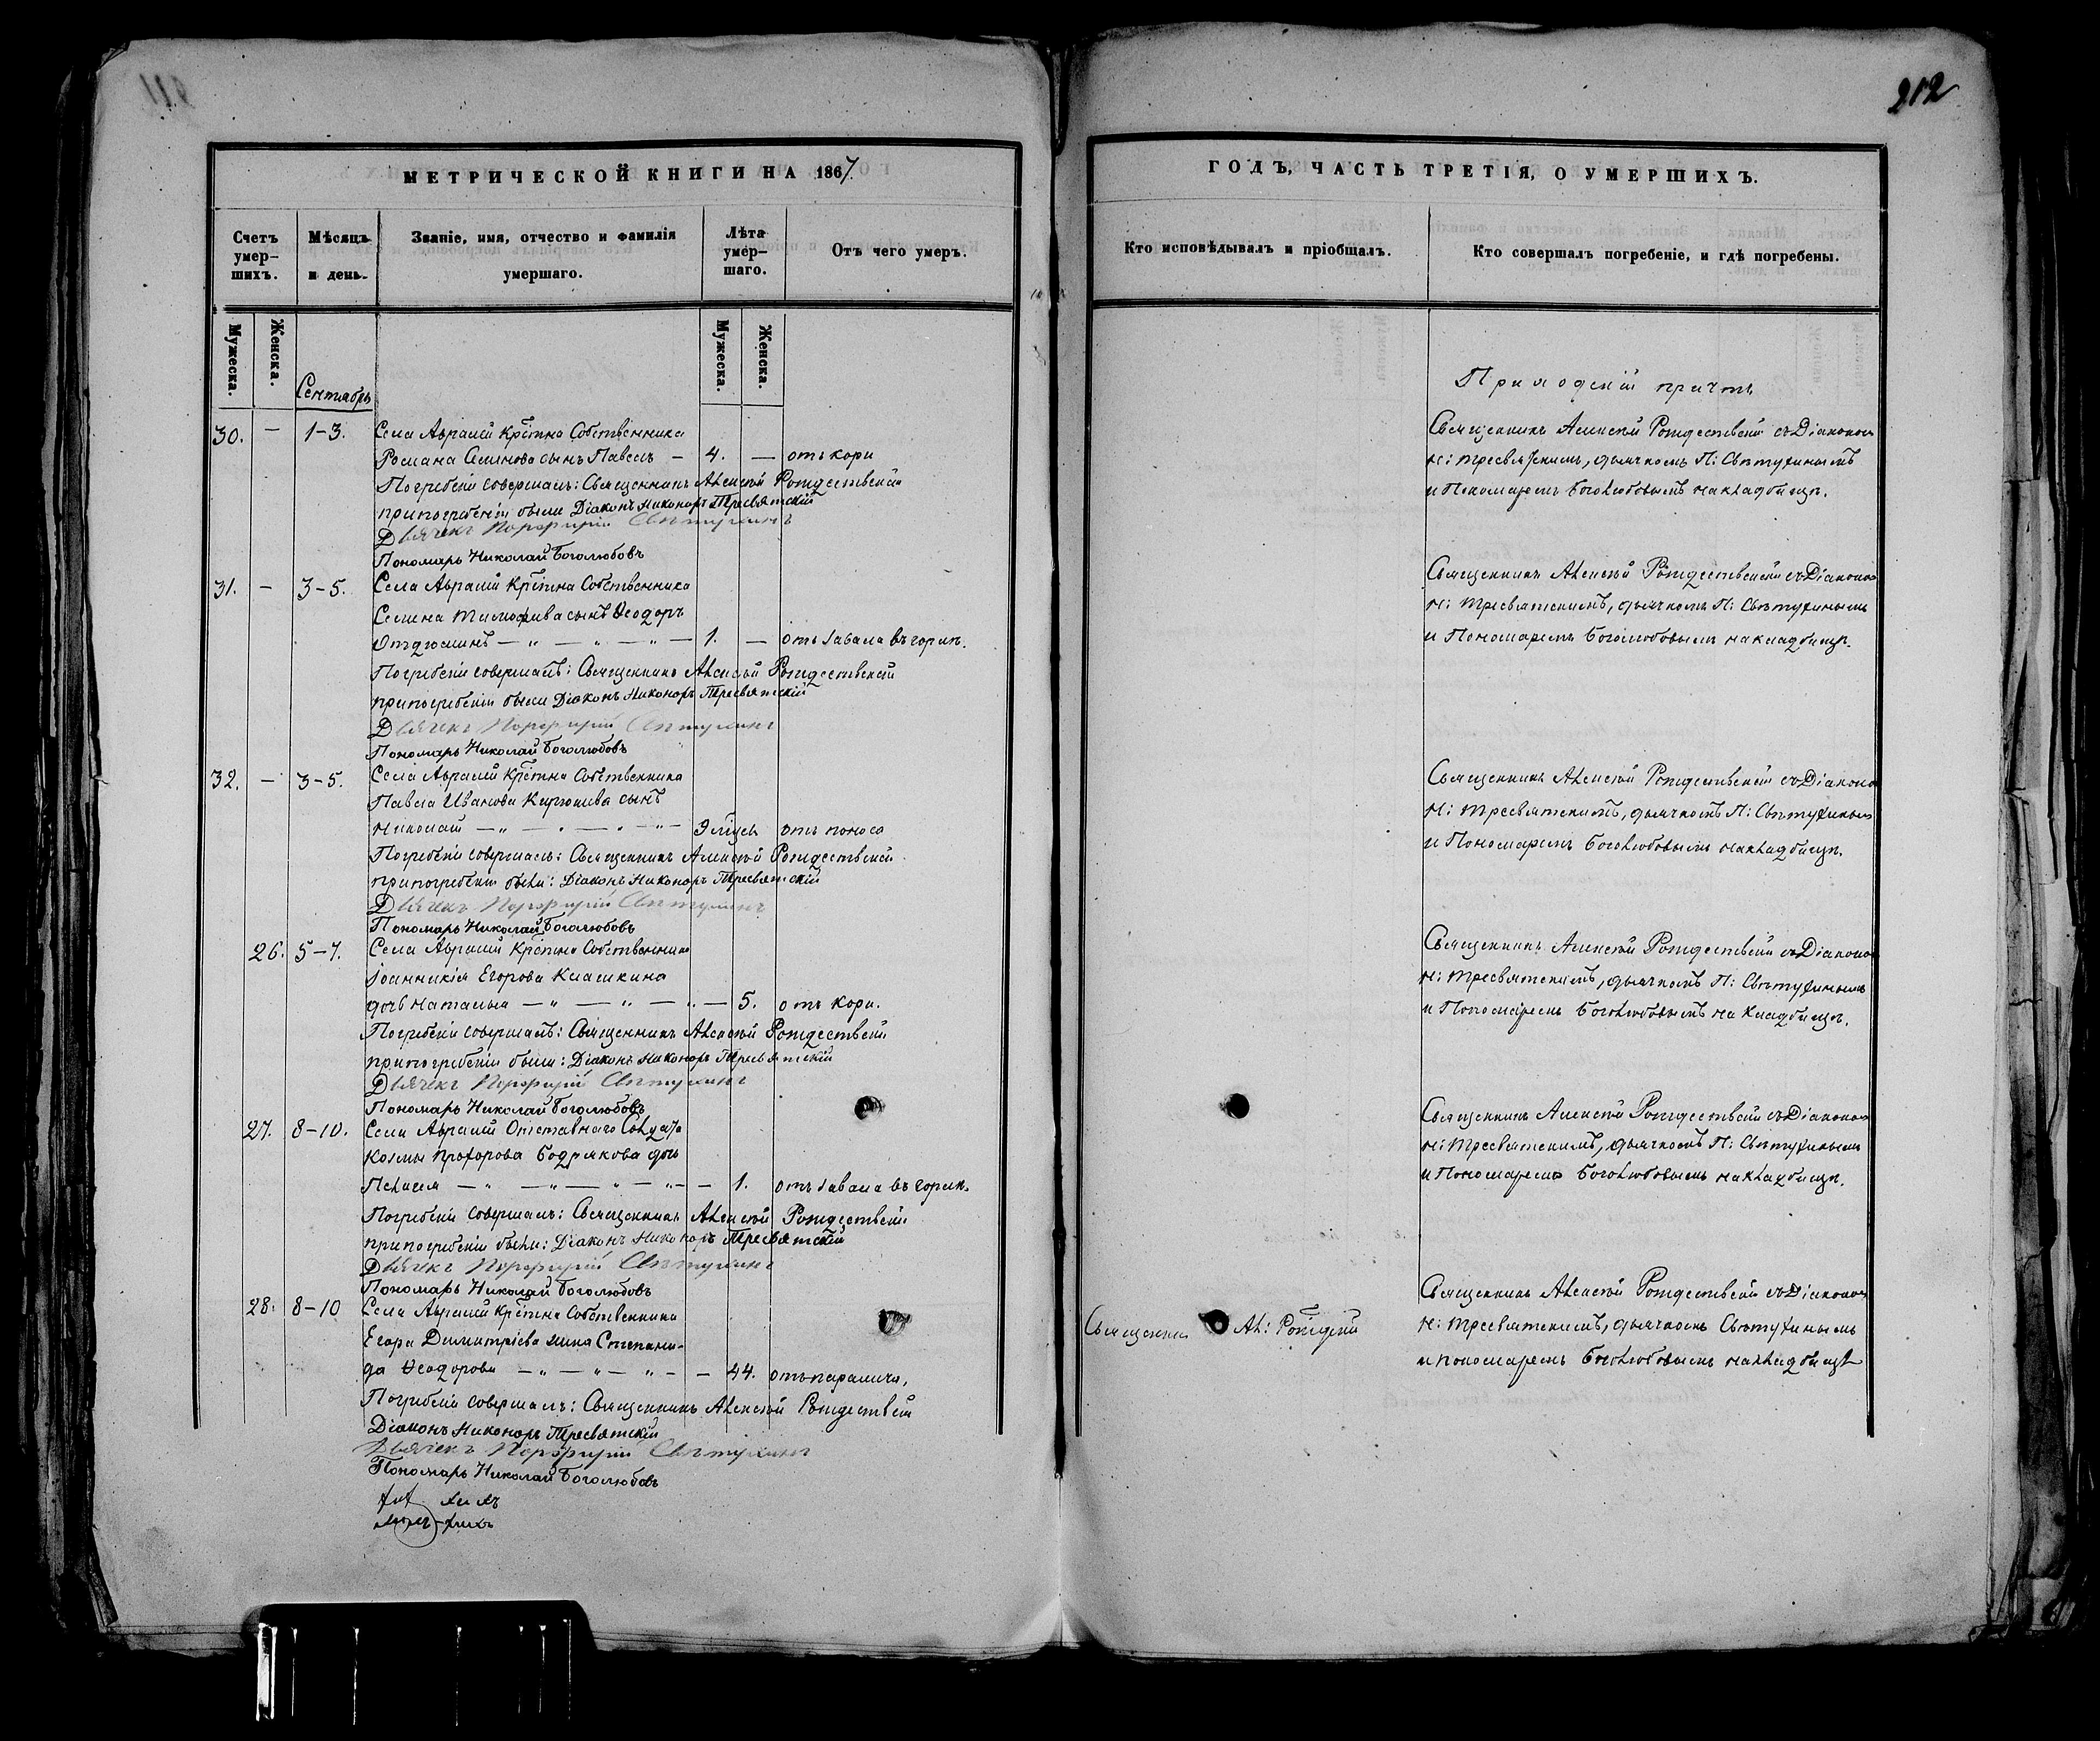 212
МЕТРИЧЕСКОЙ КНИГИ НА 1867.
Счетъ умер-
шихъ.
Мѣсяцъ
и день.
Званіе, имя, отчество и фамилія
умершаго.
Лѣта
умер-
шаго.
Отъ чего умеръ.
Мужеска.
Женска.
Мужеска.
Женска.
Сентябрь
30. — 1-3. Села Авралей Крѣтна Собственника
Романа Семенова сынъ Павелъ — 4. — отъ кори
Погребеніе совершалъ: Священникъ Алексѣй Рождественскій
при погребеніи были Діаконъ Никоноръ Тресвятскій
Дьячекъ Порфирій Свѣтухинъ
Пономарь Николай Боголюбовъ
31. — 3-5. Села Авралей Крѣтна Собственника
Семена Тимофѣева сынъ Ѳеодоръ
— „ — „ — „ — 1. — отъ завала въ горлѣ.
Погребеніе совершалъ: Священникъ Алексѣй Рождественскій
при погребеніи были Діаконъ Никоноръ Тресвятскій
Дьячекъ Порфирій Свѣтухинъ
Пономарь Николай Боголюбовъ
32. — 3-5. Села Авралей Крѣтна Собственника
Павла Иванова Кирюшева сынъ
Николай — „ — „ — „ — „ — 9 мѣсец отъ поноса
Погребеніе совершалъ: Священникъ Алексѣй Рождественскій
при погребеніи были: Діаконъ Никоноръ Тресвятскій
Дьячекъ Порфирій Свѣтухинъ
Пономарь Николай Боголюбовъ
26. 5-7. Села Авралей Крѣтна Собственника
Іоанникія Егорова Клашкина
дочь Наталья — „ — „ — „ — 5. отъ кори.
Погребеніе совершалъ: Священникъ Алексѣй Рождественскій
при погребеніи были: Діаконъ Никоноръ Тресвятскій
Дьячекъ Порфирій Свѣтухинъ
Пономарь Николай Боголюбовъ
27. 8-10. Села Авралей Отставнаго Солдата
Козмы Прохорова Бодрякова дочь
Пелагея — „ — „ — „ — „ — — 1. отъ завала въ горлѣ.
Погребеніе совершалъ: Священникъ Алексѣй Рождественскій
при погребеніи были: Діаконъ Никоноръ Тресвятскій
Дьячекъ Порфирій Свѣтухинъ
Пономарь Николай Боголюбовъ
28. 8-10 Села Авралей Крѣтна Собственника
Егора Димитріева жена Степани-
да Ѳеодорова — „ — „ — „ — — 44. отъ паралича,
Погребеніе совершалъ: Священникъ Алексѣй Рождествскій
Діаконъ Никоноръ Тресвятскій
Дьячекъ Порфирій Свѣтухинъ
Пономарь Николай Боголюбовъ
ГОДЪ, ЧАСТЬ ТРЕТІЯ, О УМЕРШИХЪ.
Кто исповѣдывалъ и пріобщалъ.
Кто совершалъ погребеніе, и гдѣ погребены.
Приходскій причтъ
Священникъ Алексѣй Рождественскій съ Діакономъ
Н: Тресвятскимъ, дьячкомъ П: Свѣтухинымъ
и Пономаремъ Боголюбовымъ на кладбищѣ.
Священникъ Алексѣй Рождественскій съ Діакономъ
Н: Тресвятскимъ, дьячкомъ П: Свѣтухинымъ
и Пономаремъ Боголюбовымъ на кладбищѣ.
Священникъ Алексѣй Рождественскій съ Діакономъ
Н: Тресвятскимъ, дьячкомъ П: Свѣтухинымъ
и Пономаремъ Боголюбовымъ на кладбищѣ.
Священникъ Алексѣй Рождественскій съ Діакономъ
Н: Тресвятскимъ, дьячкомъ П: Свѣтухинымъ
и Пономаремъ Боголюбовымъ на кладбищѣ.
Священникъ Алексѣй Рождественскій съ Діакономъ
Н: Тресвятскимъ, дьячкомъ П: Свѣтухинымъ
и Пономаремъ Боголюбовымъ на кладбищѣ.
Священникъ Ал: Рождскій
Священникъ Алексѣй Рождественскій съ Діакономъ
Н: Тресвятскимъ, дьячкомъ Свѣтухинымъ
и пономаремъ Боголюбовымъ на кладбищѣ